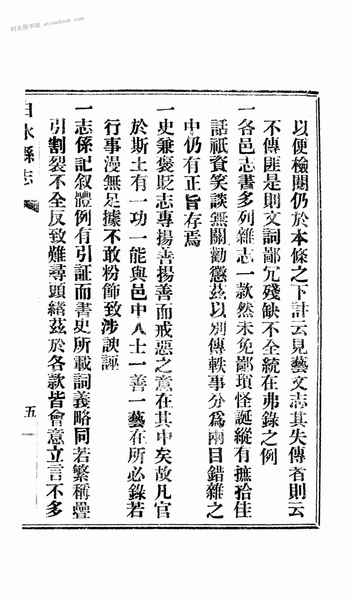 以便檢閱仍於本條之下註云見藝文志其失傳者則云
不傳匪是則文詞鄙冗殘缺不全統在弗錄之例
一各邑志書多列雜志一款然未免鄙瑣怪誕縱有摭拾佳
話祇資笑談無關勸懲茲以別傳軼事分爲兩目錯雜之
中仍有正旨存焉
一史兼褒貶志專揚善揚善而戒惡之意在其中矣故凡官
於斯土有一功一能與邑中人士一善一藝在所必錄若
行事漫無足據不敢粉飾致涉諛誣
一志係記叙體例有引証而書史所載詞義略同若繁稱疊
引割裂不全反致難尋頭緒茲於各款皆會意立言不多
白水縣志
五